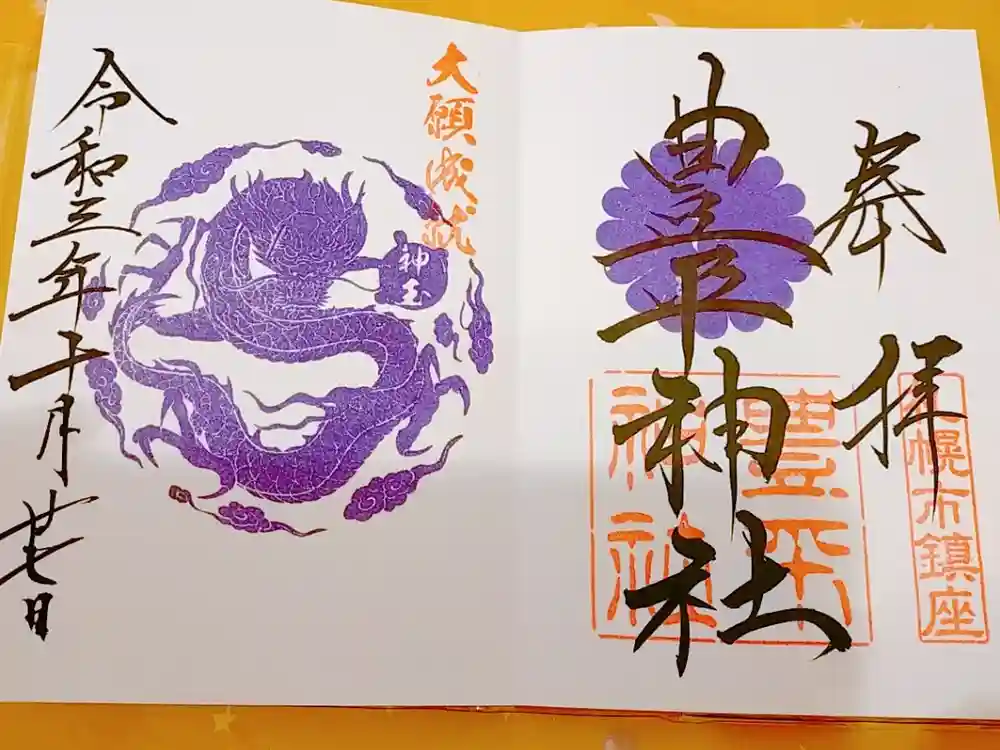 奉拝
札幌市鎮座
豊平神社
豊平
神社
大願成就
神玉
令和三年十月廿七日